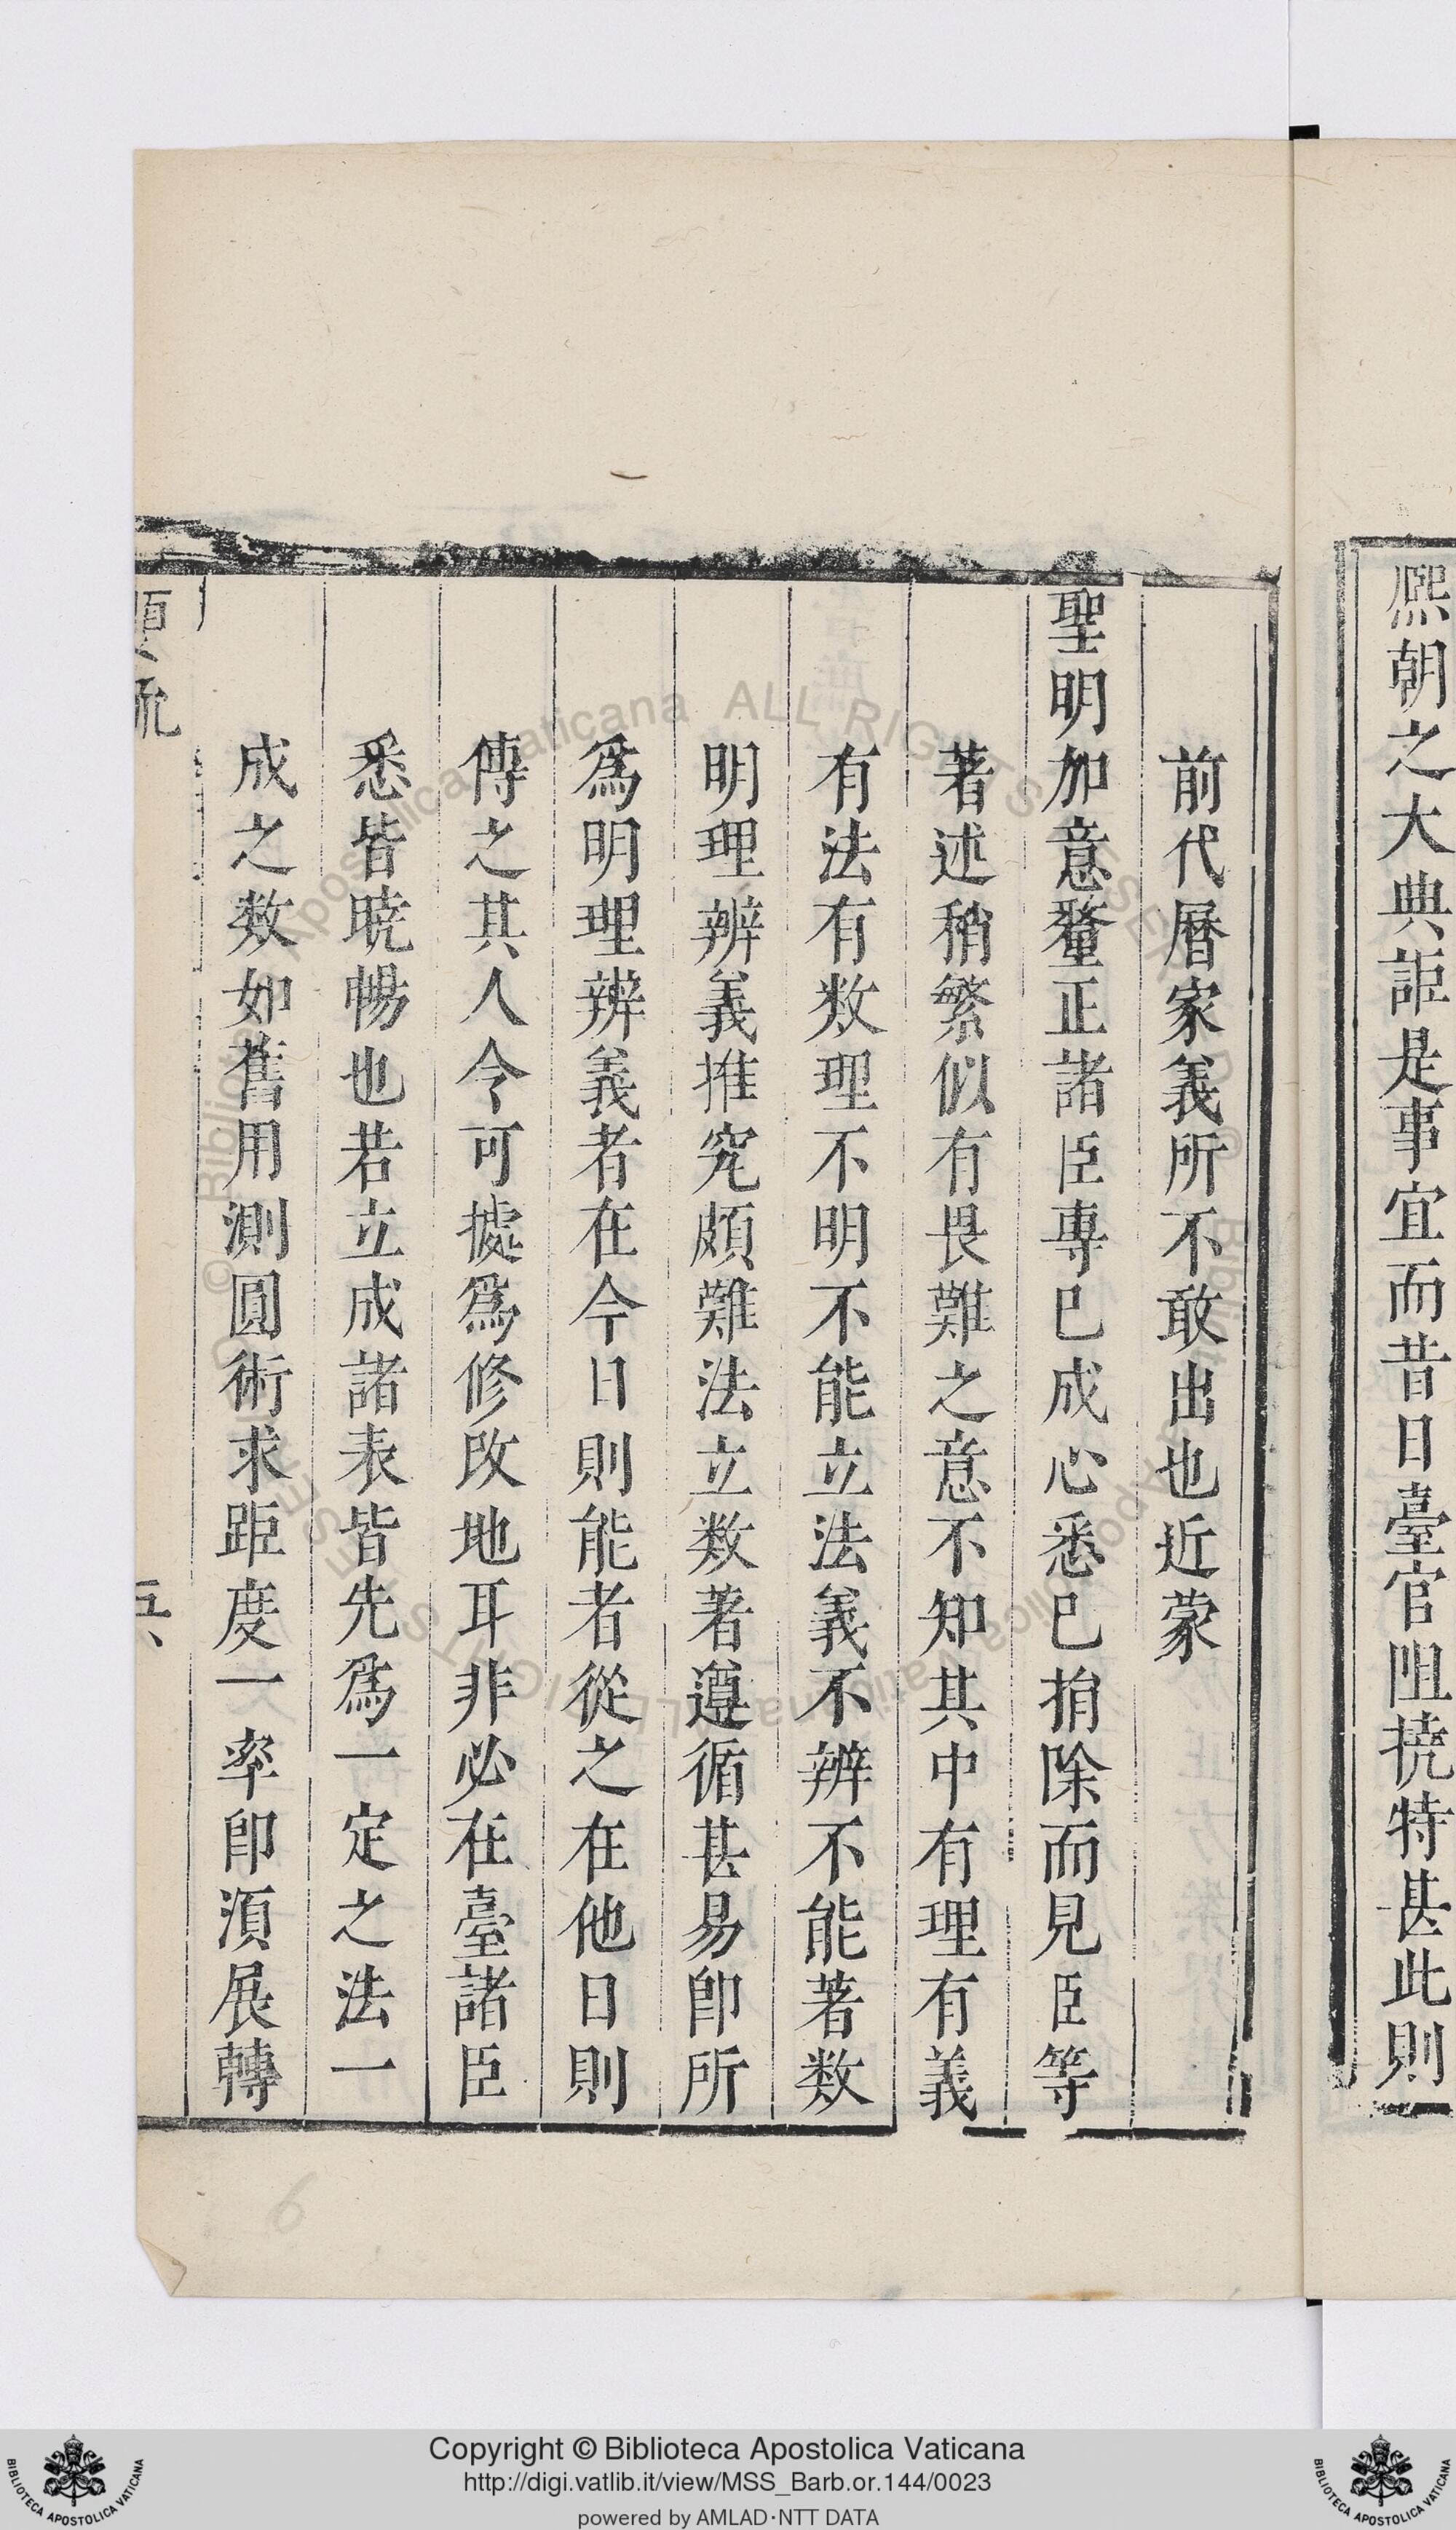 熈朝之大典詎是事宜而昔日臺官阻撓特甚此則
前代曆家義所不敢出也近蒙
聖明加意釐正諸臣專已成心悉已捐除而見臣等
著述稍繁似有畏難之意不知其中有理有義
有法有数理不明不能立法義不辨不能著数
明理辨義推究頗難法立数著遵循甚易卽所
爲明理辨義者在今日則能者從之在他日則
傳之其人令可據爲修改地耳非必在臺諸臣
悉皆暁暢也若立成諸表皆先爲一定之法一
成之数如舊用測圓術求距度一率卽湏展轉
Copyright © Biblioteca Apostolica Vaticana
http://digi.vatlib.it/view/MSS_Barb.or.144/0023
powered by AMLAD·NTT DATA
BIBLIOTECA APOSTOLICA VATICANA
BIBLIOTECA APOSTOLICA VATICANA